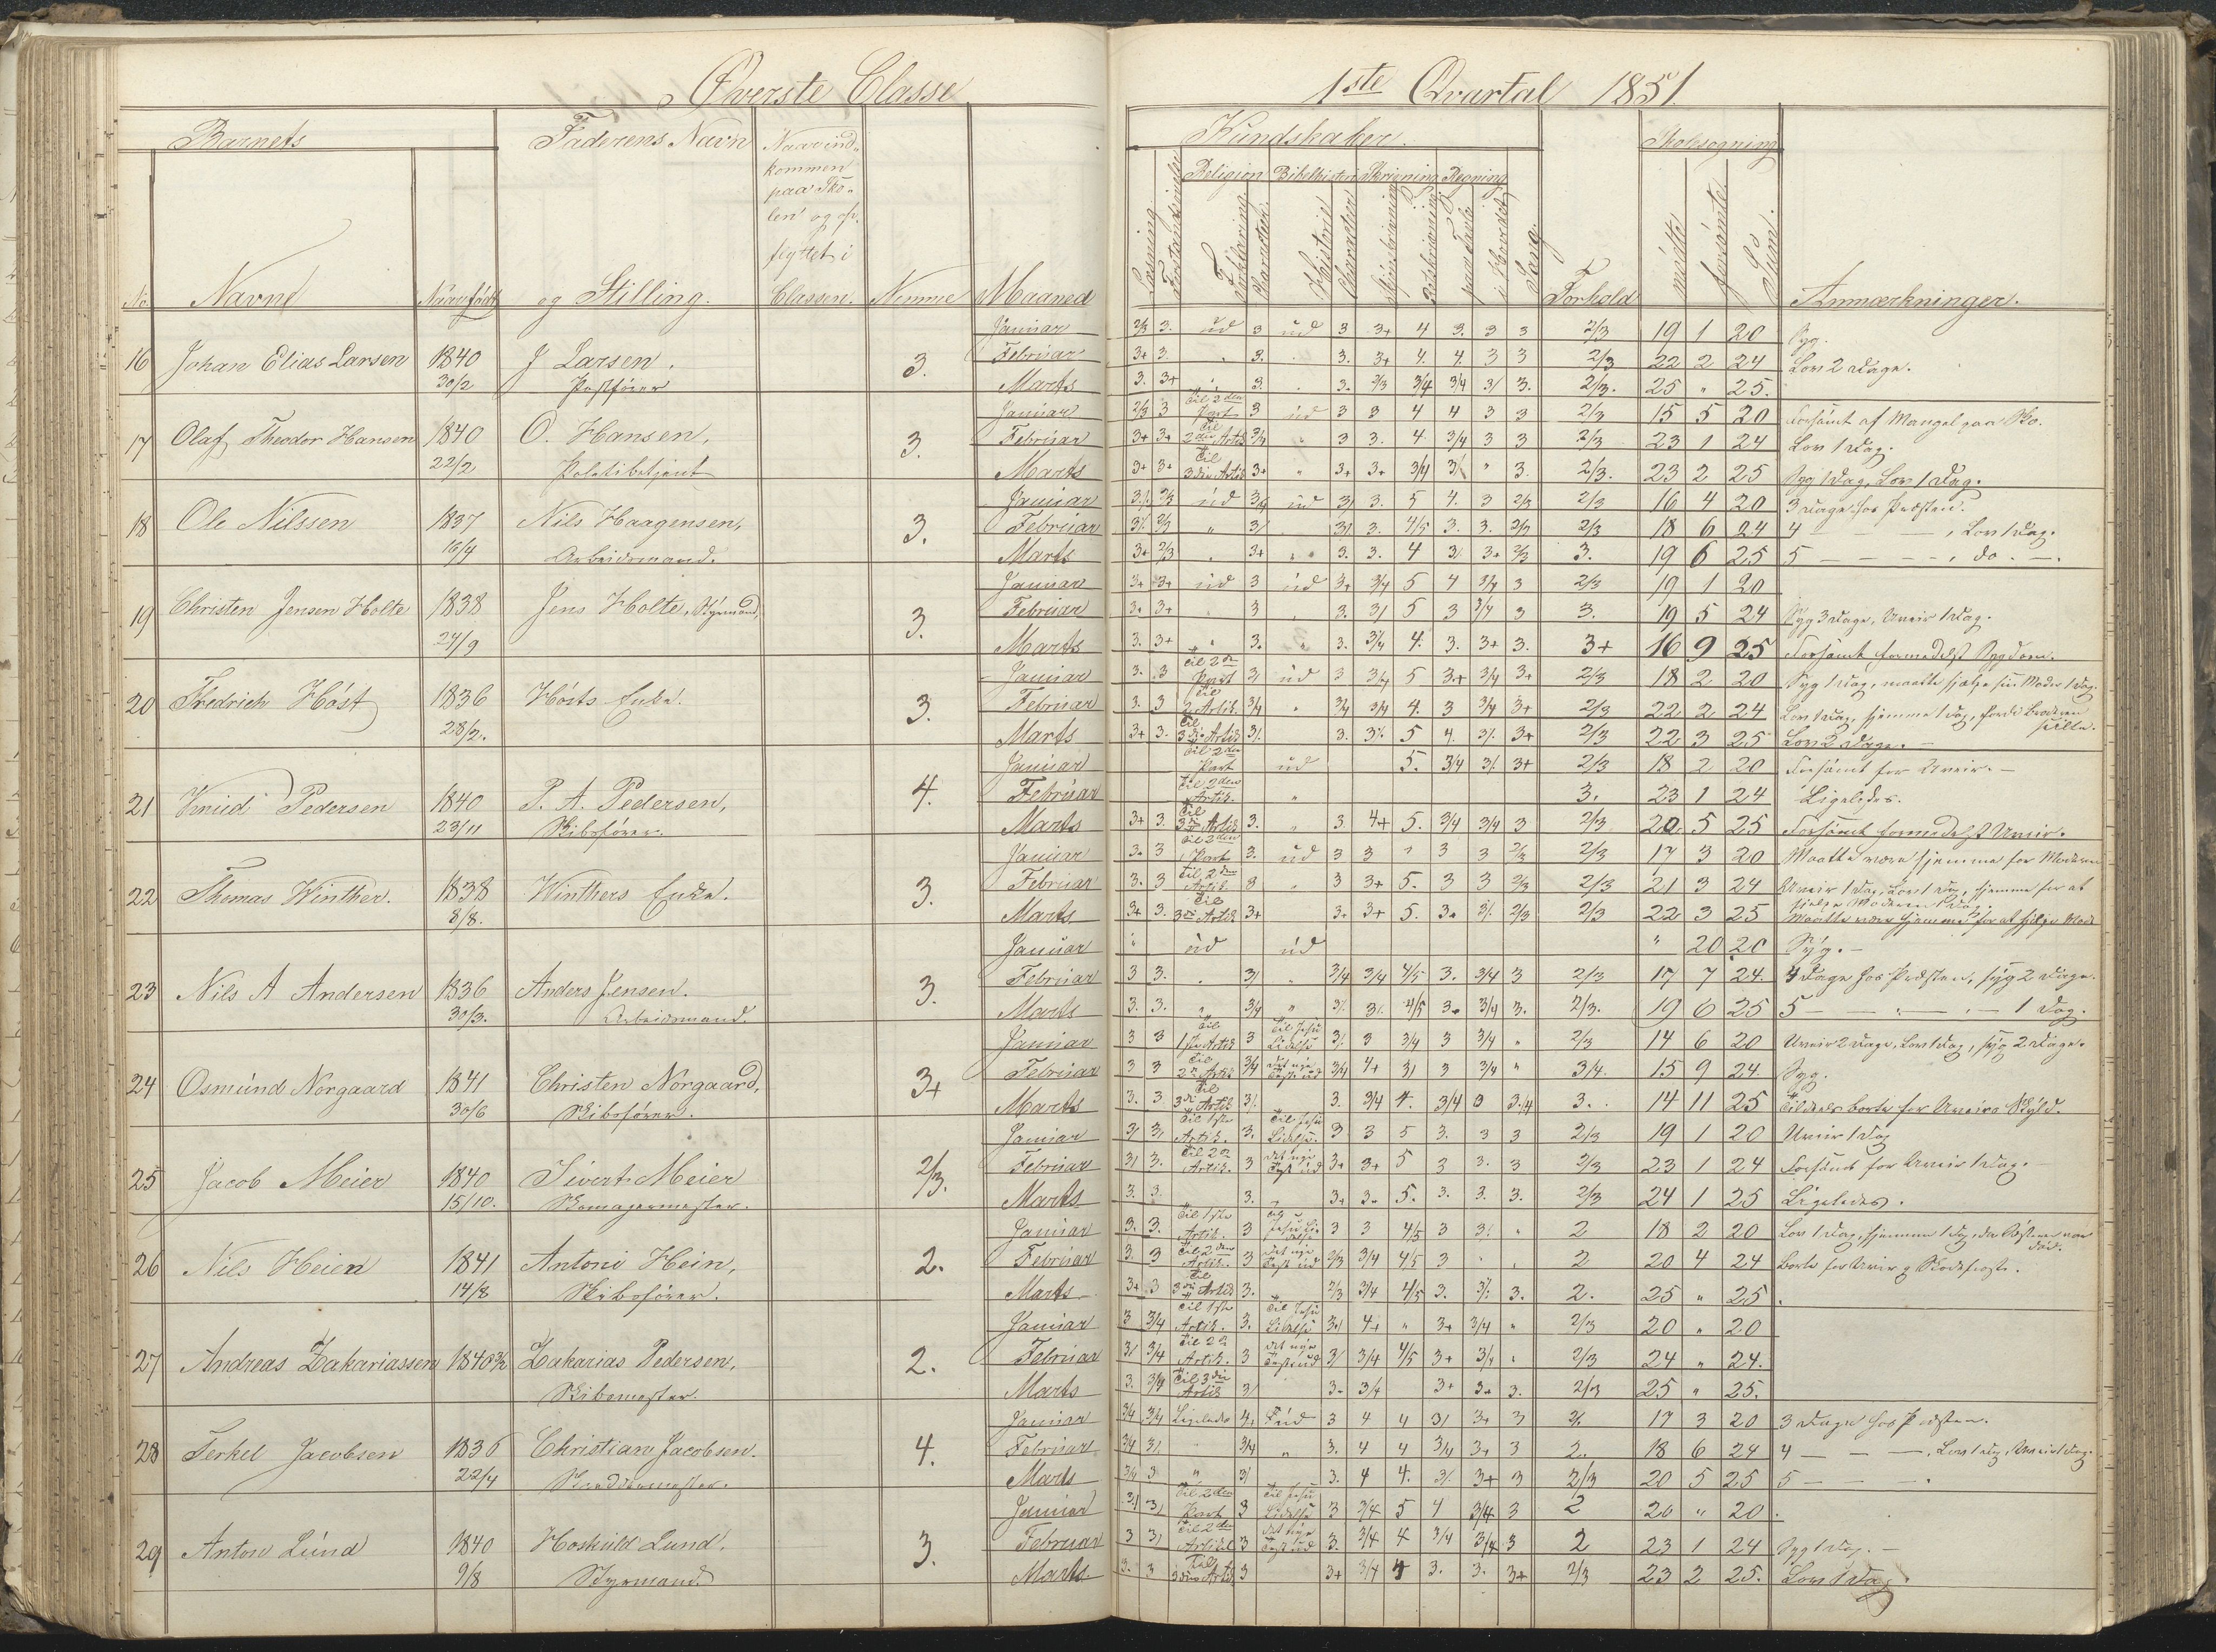 Øverste Classe
1ste Qvartal 1851.
Barnets
Faderens Navn
Naar ind-
kommen
paa Sko-
len og op-
flyttet i
Classen.
No
Navne
Naar født
og Stilling.
Nemme
Maaned
Kundskaber.
Religion Bibelhistorie Skrivning Regning
Læsning
Forklaring
Historie
Sang.
Forhold
Skolesøgning
mødte
forsømte
Sum.
Anmærkninger.
Januar 2/3 3. ud 3 ud 3 3+ 4 3. 3 3 2/3 19 1 20 Syg.
16 Johan Elias Larsen 1840 J Larsen. 3. Februar 3+ 3. 3. 3. 3+ 4. 4. 3 3 2/3 22 2 24 Lov 2 Dage.
30/2 Postfører Marts 3. 3+ 3. 3. 2/3 3/4 3/4 3/ 3. 2/3. 25 " 25.
Januar 2/3 3 Til 2den Part 3 ud 3 3 4 4 3 3 2/3 15 5 20 Forsömt af Mangel paa Sko.
17 Olaf Theodor Hansen 1840 O. Hansen, 3. Februar 3+ 3+ Til 2den Artik 3/4 " 3 3. 4. 3/4 3 3 2/3 23 1 24 Lov 1 Dag.
22/2 Politibetjent Marts 3+ 3+ Til 3die Artik 3+ " 3+ 3+ 3/4 3/ " 3. 2/3. 23 2 25 Syg 1 Dag, Lov 1 Dag.
Januar 3/ 2/3 ud 3/4 ud 3/ 3. 5 4. 3 2/3 2/3 16 4 20 3 Dage hos Præsten.
18 Ole Nilssen 1837 Nils Haagensen, 3. Februar 3/ 2/3 " 3/ 3/ 3. 4/5 3. 3. 2/3 2/3 18 6 24 4 — — , Lov 1 Dag.
16/4 Arbeidsmand. Marts 3+ 2/3 3+ 3. 3. 4 3/ 3+ 2/3 3. 19 6 25 5 — — , do. —.
Januar 3+ 3+ ud 3 ud 3+ 3/4 5 4 3/4 3 2/3 19 1 20
19 Christen Jensen Holte 1838 Jens Holte, Styrmand, 3. Februar 3. 3+ 3 3. 3/ 5 3 3/4 3 3. 19 5 24 Syg 3 Dage, Uveir 1 Dag.
24/9 Marts 3. 3+ " 3. 3. 3/4 4. 3. 3+ 3. 3+ 16 9 25 Forsömt formedelst Sygdom.
Januar 3. 3 Til 2den Part 3/ ud 3 3/4 5 3+ 3/4 3+ 2/3 18 2 20 Syg 1 Dag, maatte hjælpe sin Moder 1 Dag.
20 Fredrich Høst 1836 Høsts Enke. 3. Februar 3. 3 Til 2 Artik. 3/4 " 3/4 3/4 4. 3 3/4 3+ 2/3 22 2 24 Lov 1 Dag, hjemme 1 Dag, fordi Broderen
28/2. Marts 3+ 3. Til 3die Artik 3/ 3. 3/ 5 4. 3/ 3+ 2/3 22 3 25 Lov 2 Dage. —
Januar Til 2den Part ud 5. 3/4 3/ 3+ 2/3 18 2 20 Forsömt for Uveir. —
21 Knud Pedersen 1840 P. A. Pedersen, 4. Februar Til 2den Artik. " 3. 23 1 24 Ligeledes.
23/11 Skibsfører. Marts 3+ 3. Til 3die Artik 3. " 3. 4+ 5. 3/4 3/4 3 2/3 20 5 25 Forsömt formedelst Uveir.
Januar 3. 3 Til 2den Part 3. ud 3 3 3 3 2/3 2/3 17 3 20 Maatte være hjemme for Moderen
22 Thomas Winther. 1838 Winthers Enke. 3. Februar 3. 3 Til 2den Artik 3 " 3 3+ 5. 3 3 2/3 2/3 21 3 24 Uveir 1 Dag, Lov 1 Dag, hjemme for at
hjelpe Moderen 1 Dag.
8/8. Marts 3+ 3. Til 3die Artik 3+ 3. 3+ 5. 3. 3/ 2/3 2/3 22 3 25 Maatte være hjemme for at hjelpe Mod
Januar ud ud " 20 20 Syg. —
23 Nils A Andersen 1836 Anders Jensen. 3. Februar 3 3. 3/ " 3/4 3/4 4/5 3. 3/4 3 2/3 17 7 24. 4 Dage hos Præsten, syg 2 Dage.
30/3. Arbeidsmand. Marts 3. 3. " 3/4 " 3/ 3/ 4/5 3. 3/4 3. 2/3. 19 6 25 5 — — — 1 Dag.
Januar 3 3 Til 1ste Artik 3 Til Jesu Lidelse 3/ 3 3/4 3 3/4 " 2/3 14 6 20 Uveir 2 Dage, Lov 1 Dag, syg 2 Dage.
24 Osmund Norgaard 1841 Christen Norgaard, 3+ Februar 3 3 Til 2n Artik 3/4 det nye Test ud 3/4 4+ 3/ 3 3/4 " 3/4. 15 9 24. Syg.
30/6 Skibsfører. Marts 3. 3 Til 3die Artik 3/ 3. 3/4 4. 3/4 3 3/4 3. 14 11 25 Tildeels borte for Uveirs Skyld.
Januar 3/ 3/ Til 1ste Artik. 3. Til Jesu Lidelse. 3 3 5 3. 3 3 2/3 19 1 20 Uveir 1 Dag
25 Jacob Meier 1840 Sivert Meier 2/3. Februar 3/ 3. Til 2n Artik. 3 det nye Test ud 3+ 3+ 5 3 3. 3 2/3 23 1 24 Forsömt for Uveir 1 Dag. —
15/10. Skomagermester. Marts 3. 3. 3. 3+ 3. 5. 3. 3. 3. 2/3 24 1 25 Ligeledes.
Januar 3. 3. Til 1ste Artik. 3 Jesu Lidelse 3 3 4/5 3 3/ " 2 18 2 20 Lov 1 Dag, hjemme 1 Dag, da Søsteren var
død.
26 Nils Heien 1841 Antoni Hein, 2. Februar 3. 3 Til 2den Artik. 3 det nye Test ud 2/3 3/4 4/5 3 2 20 4 24 Borte for Uveir
14/8 Skibsfører. Marts 3+ 3 Til 3die Artik 3. 2/3 3/4 4/5 3. 3/ 3. 2. 25 " 25.
Januar 3 3/4 Til 1ste Artik. 3. Til Jesu Lidelse 3/ 4+ " 3+ 3/4 " 2/3 20 " 20
27 Andreas Zakariassen 1840 Zakarias Pedersen, 2. Februar 3/ 3/4 Til 2n Artik. 3 det nye Test ud 3/ 3/4 4/5 3+ 3/4 2/3 24 " 24.
Skibsmester. Marts 3. 3/4 Til 3die Artik 3/ 3. 3/4 3+ 3+ 3. 2/3 25 " 25.
Januar 3/4 3/4 Ligeledes 4. ud 3 4 4 3/ 3+ 3 17 3 20 3 Dage hos Præsten.
28 Terkel Jacobsen 1836 Christian Jacobsen. 4. Februar 3/4 3/ 3/4 " 3. 4 4 3/4 3+ 3 2. 18 6 24 4 — — , Lov 1 Dag, Uveir 1 Dag.
22/4 Skreddermester. Marts 3/4 3 " 3/ 3. 4 4. 3/ 3+ 3 2/3 20 5 25 5 — — .
Januar 3/ 3/ Til 2den Part 3 Til Jesu Lidelse 3 3/4 5 4 3/4 3 2 20 " 20.
29 Anton Lund 1840 Hoskuld Lund. 3. Februar 3 3/ Til 2den Artikel 3 det nye Test ud 3. 3/4 4 3/4 3/4 3 2 23 1 24 Syg 1 Dag. —
9/8 Styrmand. Marts 3. 3 Til 3die Artik 3 3+ 3/4 4 3. 3. 3+ 2/3 23 2 25. Lov 1 Dag.